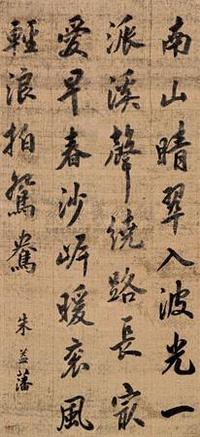 南山晴翠入波光一
派溪聲繞路長最
愛早春沙岸暖東風
輕浪拍鴛鴦
朱益藩